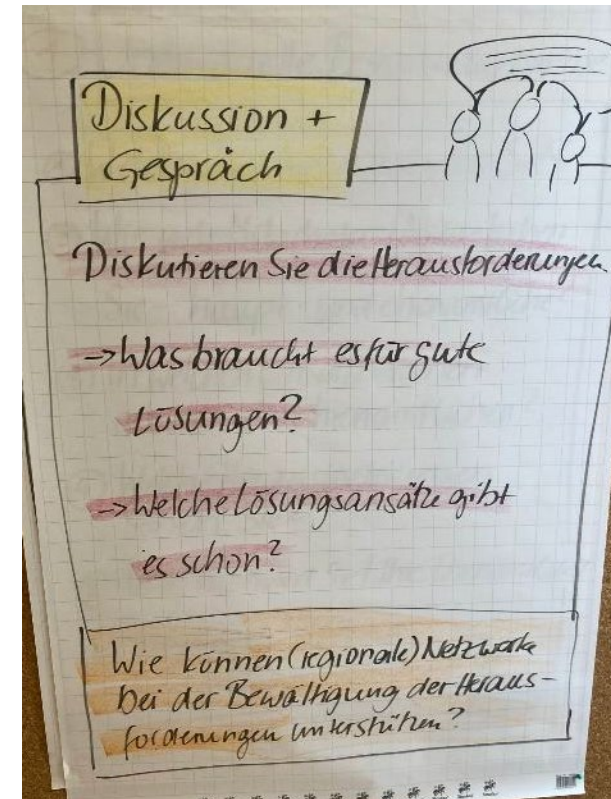 Diskussion +
Gespräch
Diskutieren Sie die Herausforderungen
→ Was braucht es für gute
Lösungen?
→ Welche Lösungsansätze gibt
es schon?
Wie können (regionale) Netzwerke
bei der Bewältigung der Heraus-
forderungen unterstützen?